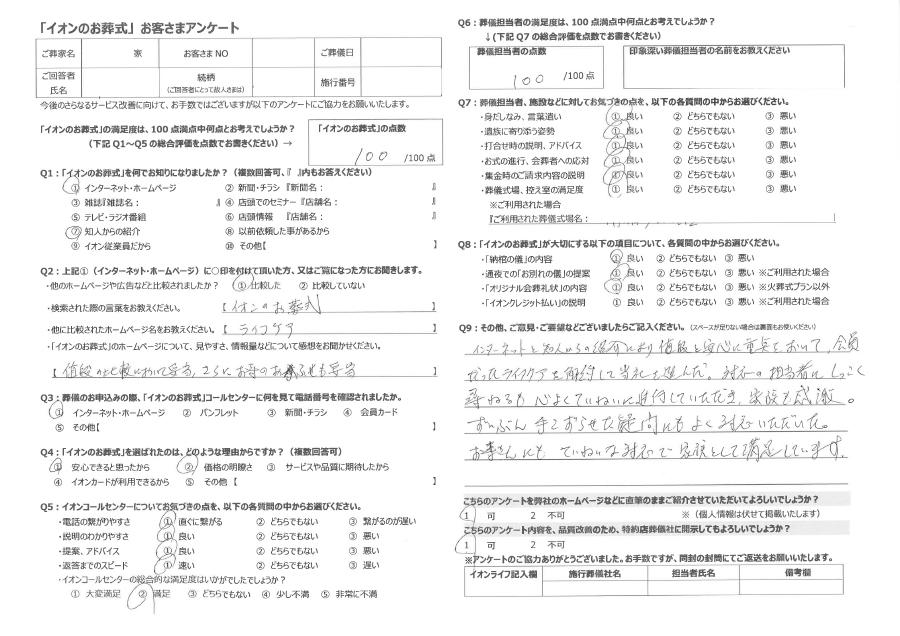 「イオンのお葬式」お客さまアンケート
ご葬家名 家 お客さまNO ご葬儀日
ご回答者氏名 続柄（ご回答者にとって故人さまは） 施行番号
今後のさらなるサービス改善に向けて、お手数ではございますが以下のアンケートにご協力をお願いいたします。
「イオンのお葬式」の満足度は、100点満点中何点とお考えでしょうか？
（下記Q1～Q5の総合評価を点数でお書きください）→
「イオンのお葬式」の点数
100 /100点
Q1：「イオンのお葬式」を何でお知りになりましたか？（複数回答可、『 』内もお答えください）
① インターネット・ホームページ ② 新聞・チラシ『新聞名： 』
③ 雑誌『雑誌名： 』 ④ 店頭でのセミナー『店舗名： 』
⑤ テレビ・ラジオ番組 ⑥ 店頭情報 『店舗名： 』
⑦ 知人からの紹介 ⑧ 以前依頼した事があるから
⑨ イオン従業員だから ⑩ その他【 】
Q2：上記①（インターネット・ホームページ）に○印を付けて頂いた方、又はご覧になった方にお聞きします。
・他のホームページや広告などと比較されましたか？ ① 比較した ② 比較していない
・検索された際の言葉をお教えください。 【 イオンのお葬式 】
・他に比較されたホームページ名をお教えください。【 ライフケア 】
・「イオンのお葬式」のホームページについて、見やすさ、情報量などについて感想をお聞かせください。
【 値段の比較において妥当、さらにお寺のお布施も妥当 】
Q3：葬儀のお申込みの際、「イオンのお葬式」コールセンターに何を見て電話番号を確認されましたか。
① インターネット・ホームページ ② パンフレット ③ 新聞・チラシ ④ 会員カード
⑤ その他【 】
Q4：「イオンのお葬式」を選ばれたのは、どのような理由からですか？（複数回答可）
① 安心できると思ったから ② 価格の明瞭さ ③ サービスや品質に期待したから
④ イオンカードが利用できるから ⑤ その他【 】
Q5：イオンコールセンターについてお気づきの点を、以下の各質問の中からお選びください。
・電話の繋がりやすさ ① 直ぐに繋がる ② どちらでもない ③ 繋がるのが遅い
・説明のわかりやすさ ① 良い ② どちらでもない ③ 悪い
・提案、アドバイス ① 良い ② どちらでもない ③ 悪い
・返答までのスピード ① 速い ② どちらでもない ③ 遅い
・イオンコールセンターの総合的な満足度はいかがでしたでしょうか？
① 大変満足 ② 満足 ③ どちらでもない ④ 少し不満 ⑤ 非常に不満
Q6：葬儀担当者の満足度は、100点満点中何点とお考えでしょうか？
↓（下記Q7の総合評価を点数でお書きください）
葬儀担当者の点数 印象深い葬儀担当者の名前をお教えください
100 /100点
Q7：葬儀担当者、施設などに対してお気づきの点を、以下の各質問の中からお選びください。
・身だしなみ、言葉遣い ① 良い ② どちらでもない ③ 悪い
・遺族に寄り添う姿勢 ① 良い ② どちらでもない ③ 悪い
・打合せ時の説明、アドバイス ① 良い ② どちらでもない ③ 悪い
・お式の進行、会葬者への応対 ① 良い ② どちらでもない ③ 悪い
・集金時のご請求内容の説明 ① 良い ② どちらでもない ③ 悪い
・葬儀式場、控え室の満足度 ① 良い ② どちらでもない ③ 悪い
※ご利用された場合
『ご利用された葬儀式場名： 』
Q8：「イオンのお葬式」が大切にする以下の項目について、各質問の中からお選びください。
・「納棺の儀」の内容 ① 良い ② どちらでもない ③ 悪い
・通夜での「お別れの儀」の提案 ① 良い ② どちらでもない ③ 悪い ※ご利用された場合
・「オリジナル会葬礼状」の内容 ① 良い ② どちらでもない ③ 悪い ※火葬式プラン以外
・「イオンクレジット払い」の説明 ① 良い ② どちらでもない ③ 悪い ※ご利用された場合
Q9：その他、ご意見・ご要望などございましたらご記入ください。（スペースが足りない場合は裏面もお使いください）
インターネットと知人からの紹介により値段と安心に重点をおいて、会員
だったライフケアを解約して当社を選んだ。対応の担当者にしつこく
尋ねるも心よくていねいに受付していただき、家族も感激。
ずいぶん手こずらせた疑問にもよく対応いただいた。
お寺さんにもていねいな対応で家族として満足しています。
こちらのアンケートを弊社のホームページなどに直筆のままご紹介させていただいてよろしいでしょうか？
1 可 2 不可 ※（個人情報は伏せて掲載いたします）
こちらのアンケート内容を、品質改善のため、特約店葬儀社に開示してもよろしいでしょうか？
1 可 2 不可
※アンケートのご協力ありがとうございました。お手数ですが、同封の封筒にてご返送をお願いいたします。
イオンライフ記入欄 施行葬儀社名 担当者氏名 備考欄